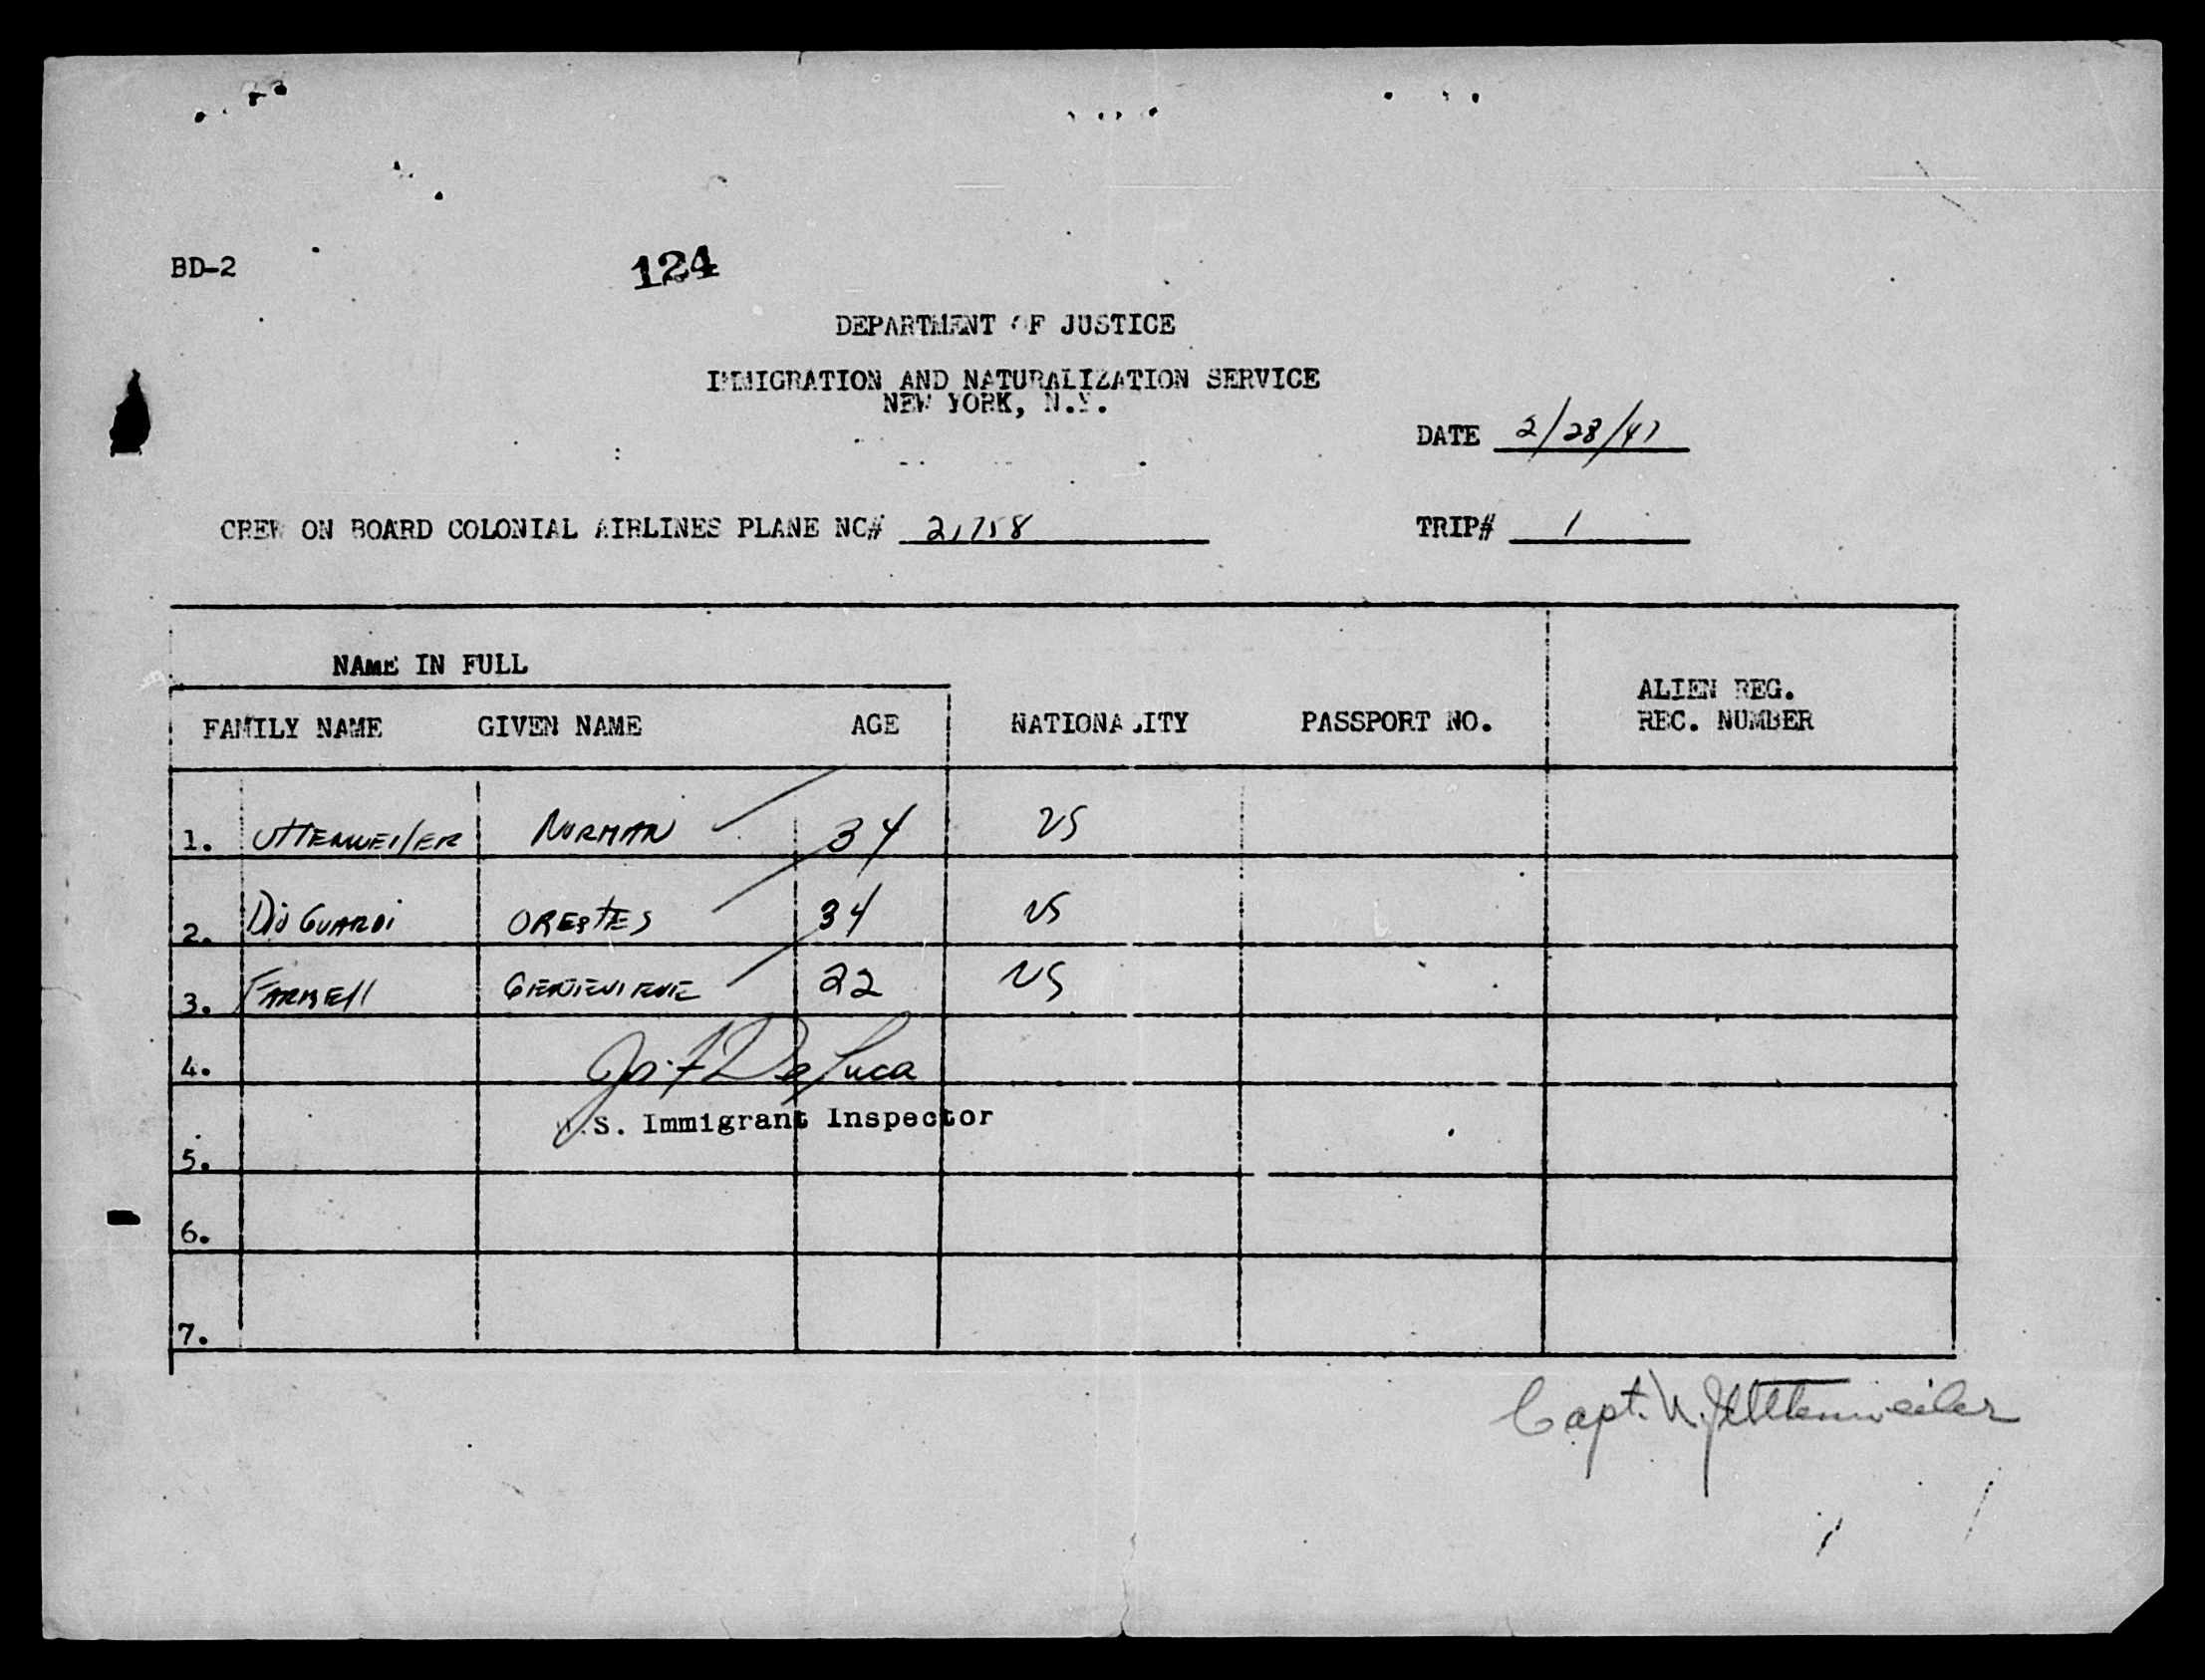 BD-2
124
DEPARTMENT OF JUSTICE
IMMIGRATION AND NATURALIZATION SERVICE
NEW YORK, N.Y.
DATE 2/28/47
CREW ON BOARD COLONIAL AIRLINES PLANE NC# 21758 TRIP# 1
NAME IN FULL
FAMILY NAME GIVEN NAME AGE NATIONALITY PASSPORT NO. ALIEN REG. REC. NUMBER
1. UTTENWEILER NORMAN 34 US
2. Dio GUARDi ORESTES 34 US
3. FARRELL GENEVIEVE 22 US
4. Jos. F. De Luca
U.S. Immigrant Inspector
5.
6.
7.
Capt. N. J. Uttenweiler